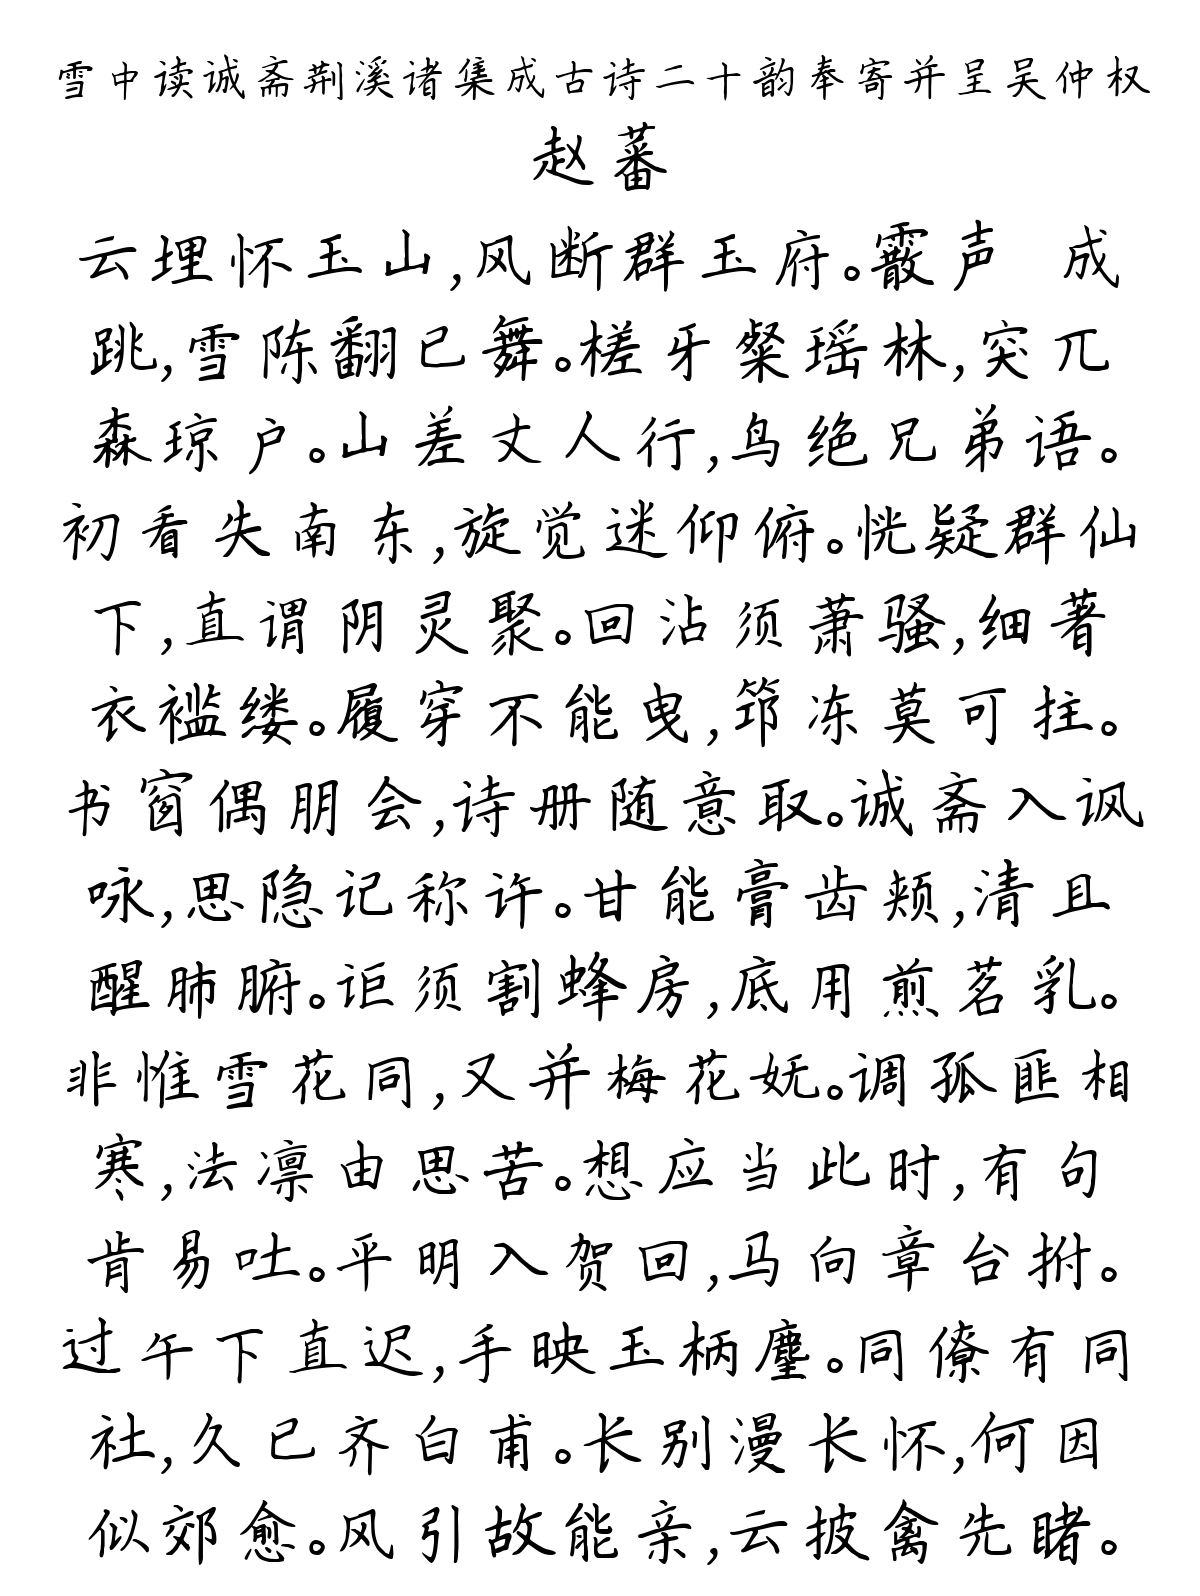 雪中读诚斋荆溪诸集成古诗二十韵奉寄并呈吴仲权
赵蕃
云埋怀玉山,风断群玉府。霰声 成
跳,雪陈翻已舞。槎牙粲瑶林,突兀
森琼户。山差丈人行,鸟绝兄弟语。
初看失南东,旋觉迷仰俯。恍疑群仙
下,直谓阴灵聚。回沾须萧骚,细著
衣褴缕。履穿不能曳,筇冻莫可拄。
书窗偶朋会,诗册随意取。诚斋入讽
咏,思隐记称许。甘能膏齿颊,清且
醒肺腑。讵须割蜂房,底用煎茗乳。
非惟雪花同,又并梅花妩。调孤匪相
寒,法凛由思苦。想应当此时,有句
肯易吐。平明入贺回,马向章台拊。
过午下直迟,手映玉柄麈。同僚有同
社,久已齐白甫。长别漫长怀,何因
似郊愈。风引故能亲,云披禽先睹。